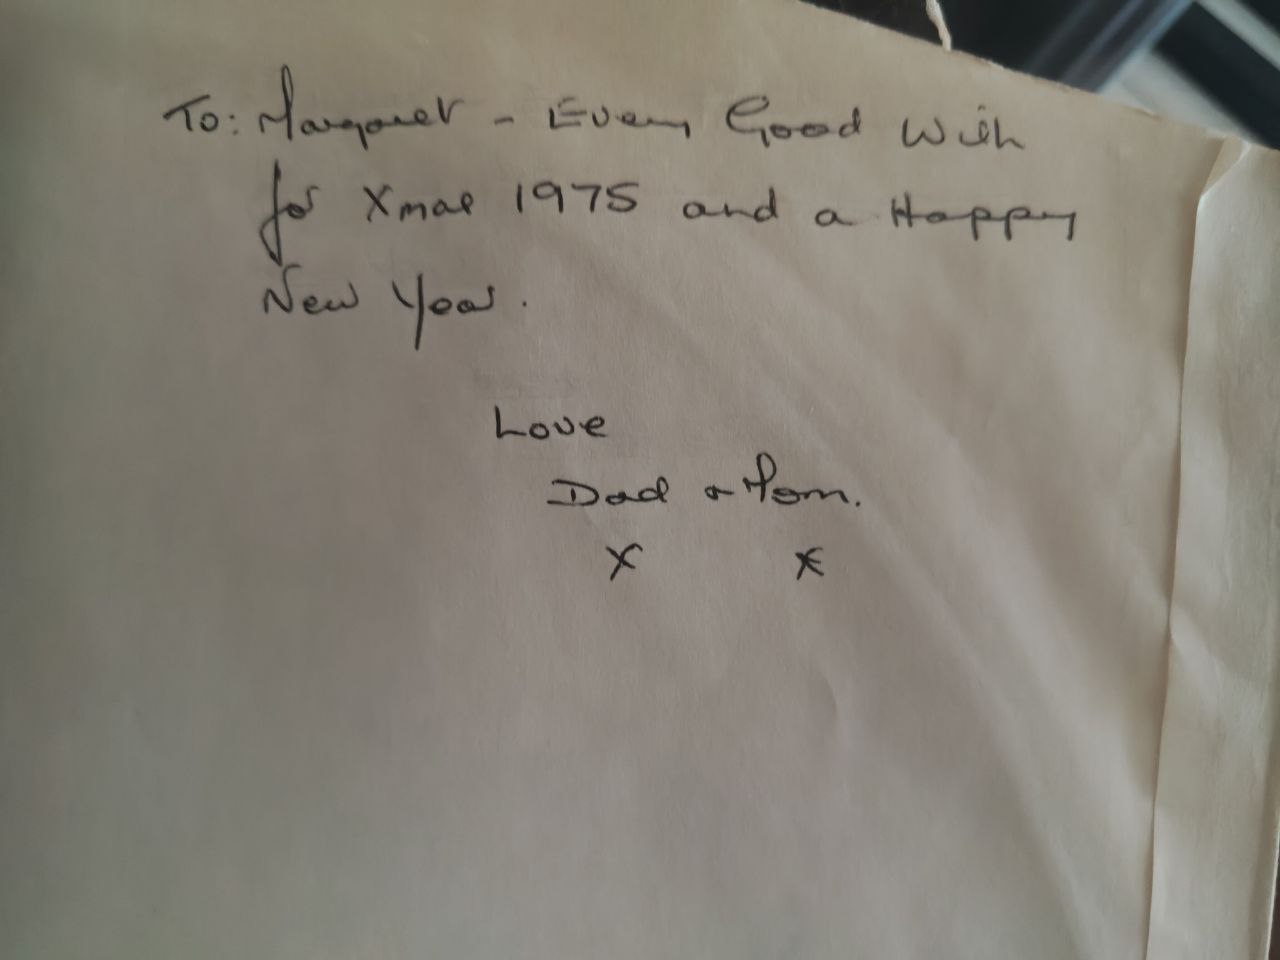 To: Margaret - Every Good Wish
for Xmas 1975 and a Happy
New Year.
Love
Dad & Mom.
X X